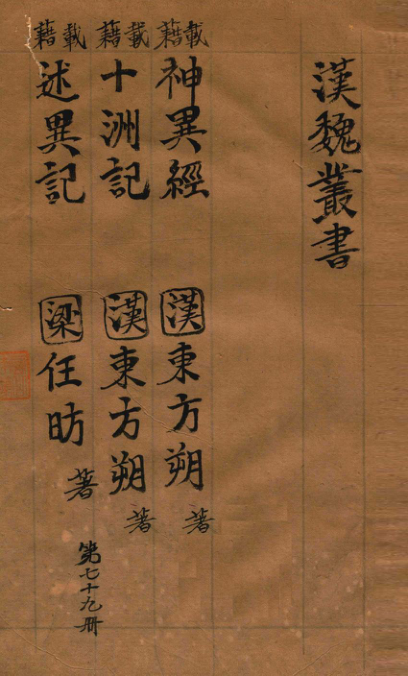 漢魏叢書
載藉 神異經 漢 東方朔 著
載藉 十洲記 漢 東方朔 著
載藉 述異記 梁 任昉 著
第七十九册